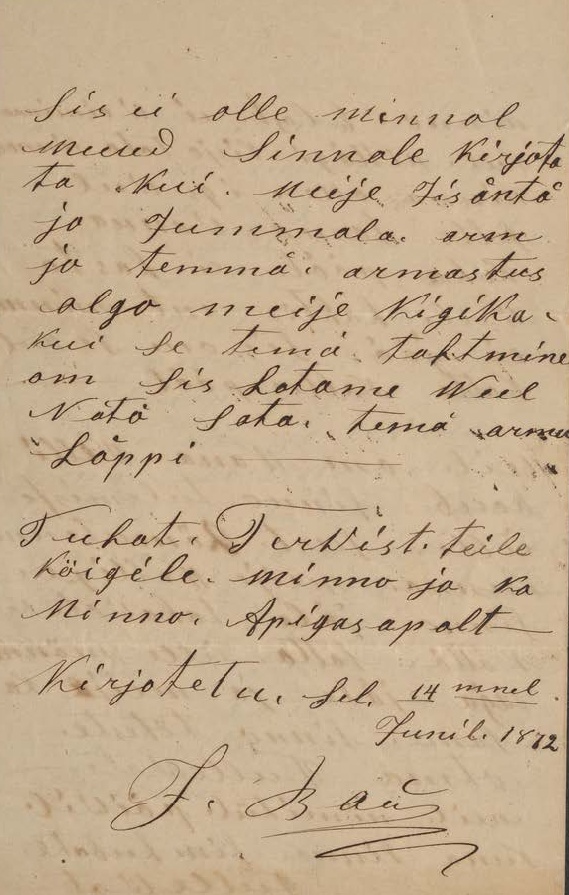 Sis ei olle minnol
muud Sinnole Kirjota
ta Kui. meije Jsäntä
jo Jummala. arm
jo temmä. armastus
olgo meije Kigika.
Kui Se temä. tahtmine
om Sis Lotame Weel
Nätä Sata. temä armu
Läppi
Tuhat. Terwist. teile
Köigéle. minno jo ka
Minno. Apigasapolt
Kirjotetu. Sel. 14 mnel
Junil. 1872
J. Bau